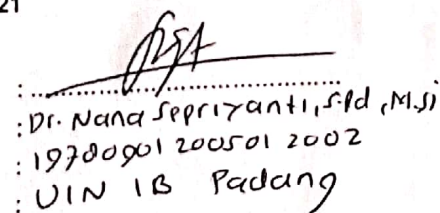 21
:..............................
: Dr. Nana Sepriyanti, S.Pd, M.Si
: 19780901 200501 2002
: UIN IB Padang